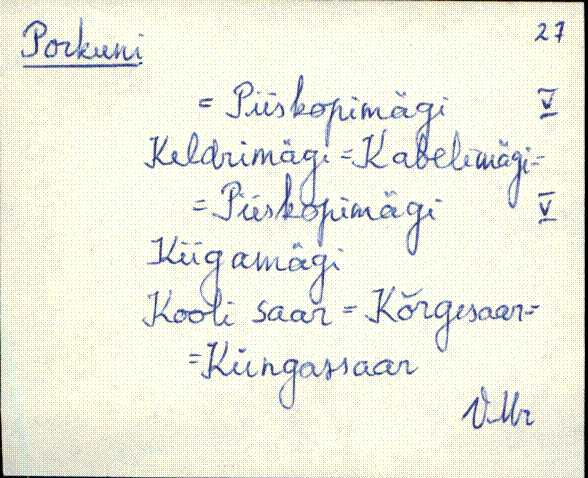 Porkuni 27
= Piiskopimägi V
Keldrimägi = Kabelimägi =
= Piiskopimägi V
Kiigamägi
Kooli saar = Kõrgesaar =
= Küngassaar
V.Mr